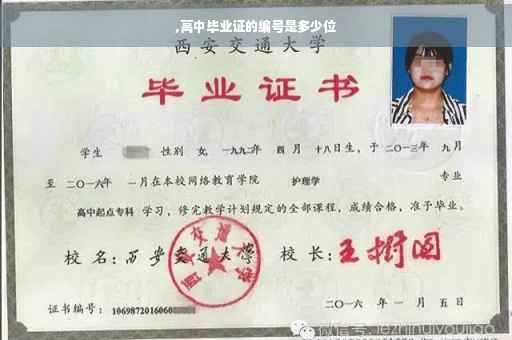 ,高中毕业证的编号是多少位
西安交通大学
毕业证书
学生 性别 女, 一九九二年 四月 十八日生,于二〇一三年 九月
至 二〇一六年 一月在本校网络教育学院 护理学 专业
高中起点专科 学习,修完教学计划规定的全部课程,成绩合格,准予毕业。
校名:西安交通大学 校长:王树国
西安交通大学
证书编号:1069872016060
二〇一六年 一月 五日
微信号:lezhihuiyoujiao